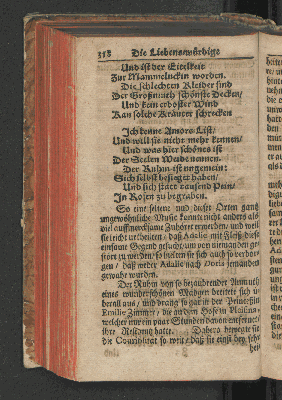 318 Die Liebenswürdige
Und ist der Eitelkeit
Zur Mammeluckin worden.
Die schlechten Kleider sind
Der Großmuth schönste Decken/
Und kein erboster Wind
Kan solche Kräuter schrecken
Ich kenne Amors List/
Und will sie nicht mehr kennen/
Und was hier schönes ist
Der Seelen Weide nennen.
Der Ruhm ist ungemein:
Sich selbst besieget haben/
Und sich statt tausend Pein/
In Rosen zu begraben.
So eine seltene und dieser Orten gantz
ungewöhnliche Music kente nicht anders als
viel auffmercksame Zuhörer erwerben/ und weil
sie nicht urtheilten/ daß Adalie mit Fleiß diese
einsame Gegend gesucht/ um von niemanden ge-
stört zu werden/ so hielten sie sich auch so verbor-
gen/ daß weder Adalie noch Doris jemanden
gewahr wurden.
Der Ruhm von so bezaubernder Anmuth
eines wunderschönen Mädgen breitete sich ü-
berall aus/ und drang so gar in der Princeßin
Emilie Zimmer/ die an dem Hofe in
welcher nur ein paar Stunden davon entfernet/
ihre Residentz hatte. Dahero bewegte sie
die Curiosität so weit/ daß sie einst